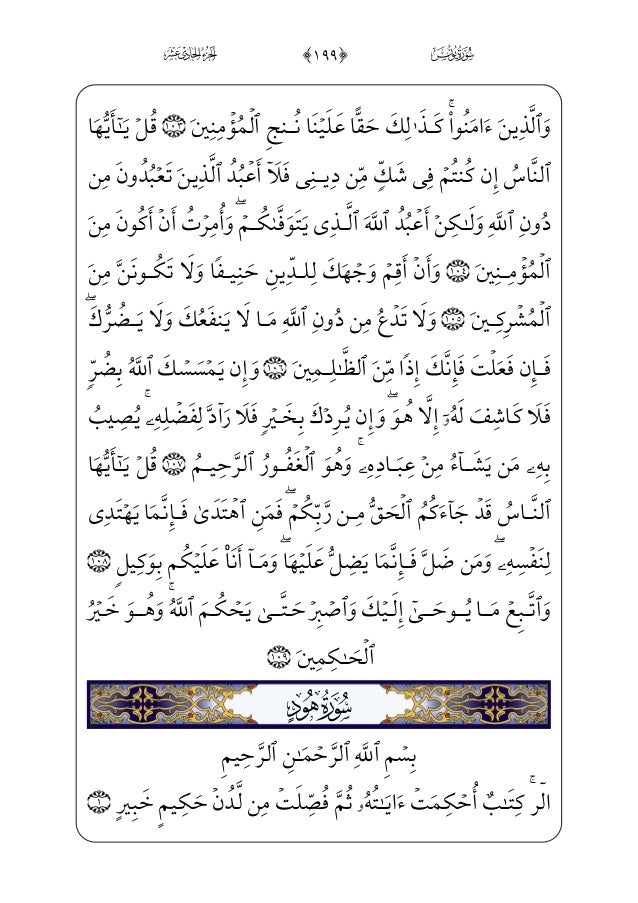 سُورَةُ يُونُسَ ﴿١٩٩﴾ الجزء الحادي عشر
وَٱلَّذِينَ ءَامَنُوا۟ ۚ كَذَٰلِكَ حَقًّا عَلَيْنَا نُـنجِ ٱلْمُؤْمِنِينَ ١٠٣ قُلْ يَـٰٓأَيُّهَا
ٱلنَّاسُ إِن كُنتُمْ فِى شَكٍّ مِّن دِيـنِـى فَلَآ أَعْبُدُ ٱلَّذِيـنَ تَعْبُدُونَ مِن
دُونِ ٱللَّهِ وَلَـٰكِنْ أَعْبُدُ ٱللَّهَ ٱلَّـذِى يَتَوَفَّىٰكُـمْ ۖ وَأُمِرْتُ أَنْ أَكُونَ مِنَ
ٱلْمُؤْمِـنِـينَ ١٠٤ وَأَنْ أَقِمْ وَجْهَكَ لِلـدِّينِ حَنِيـفًا وَلَا تَكُـونَنَّ مِنَ
ٱلْمُشْرِكِـيـنَ ١٠٥ وَلَا تَدْعُ مِن دُونِ ٱللَّهِ مَـا لَا يَنفَعُكَ وَلَا يَـضُـرُّكَ ۖ
فَـإِن فَعَلْتَ فَإِنَّكَ إِذًا مِّنَ ٱلظَّـٰلِـمِـينَ ١٠٦ وَإِن يَمْسَسْكَ ٱللَّهُ بِضُرٍّ
فَلَا كَاشِفَ لَهُۥٓ إِلَّا هُوَ ۖ وَإِن يُـرِدْكَ بِخَـيْرٍ فَلَا رَآدَّ لِفَضْلِهِۦ ۚ يُصِيبُ
بِهِۦ مَن يَشَـآءُ مِنْ عِبَـادِهِۦ ۚ وَهُوَ ٱلْغَفُـورُ ٱلرَّحِيـمُ ١٠٧ قُلْ يَـٰٓأَيُّهَا
ٱلنَّـاسُ قَدْ جَآءَكُمُ ٱلْحَقُّ مِـن رَّبِّكُمْ ۖ فَمَنِ ٱهْتَدَىٰ فَـإِنَّمَا يَهْتَدِى
لِنَفْسِهِۦ ۖ وَمَن ضَلَّ فَـإِنَّمَا يَضِلُّ عَلَيْهَا ۖ وَمَـآ أَنَا۠ عَلَيْكُم بِوَكِيلٍ ١٠٨
وَٱتَّـبِعْ مَـا يُـوحَـىٰٓ إِلَـيْكَ وَٱصْبِرْ حَتَّـىٰ يَحْكُـمَ ٱللَّهُ ۚ وَهُـوَ خَيْرُ
ٱلْحَـٰكِمِينَ ١٠٩
سُورَةُ هُودٍ
بِسْمِ ٱللَّهِ ٱلرَّحْمَـٰنِ ٱلرَّحِيمِ
الٓر ۚ كِتَـٰبٌ أُحْكِمَتْ ءَايَـٰتُهُۥ ثُمَّ فُصِّلَتْ مِن لَّدُنْ حَكِيمٍ خَبِيرٍ ١